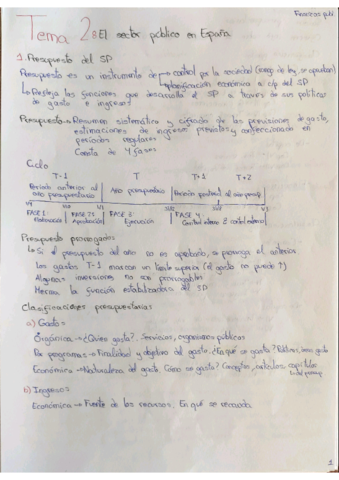 Finanzas públ
Tema 2: El sector público en España
1. Presupuesto del SP
Presupuesto es un instrumento de → control por la sociedad (rango de ley, se aprueban)
→ planificación económica a c/p del SP
↳ Refleja las funciones que desarrolla el SP a través de sus políticas
de gasto e ingresos
Presupuesto → Resumen sistemático y cifrado de las previsiones de gasto,
estimaciones de ingresos previstos y confeccionado en
períodos regulares
Consta de 4 fases
Ciclo
T-1 T T+1 T+2
Periodo anterior al año presupuestario
Año presupuestario
FASE 1 Elaboración
FASE 2 Aprobación
FASE 3 Ejecución
FASE 4 Control interno control externo
Presupuesto prorrogados
↳ Si el presupuesto del año no es aprobado, se prorroga el anterior
Los gastos T-1 marcan un límite superior (el gasto no puede ↑)
Algunas inversiones no son prorrogables
Merma la función estabilizadora del SP
Clasificaciones presupuestarias
a) Gastos
Orgánica → ¿Quién gasta? Servicios, organismos públicos
Por programas → Finalidad y objetivo del gasto. ¿En qué se gasta?
Económica → Naturaleza del gasto. Cómo se gasta? Conceptos, artículos, capítulos
b) Ingresos
Económica → Fuente de los recursos. En qué se recauda
1